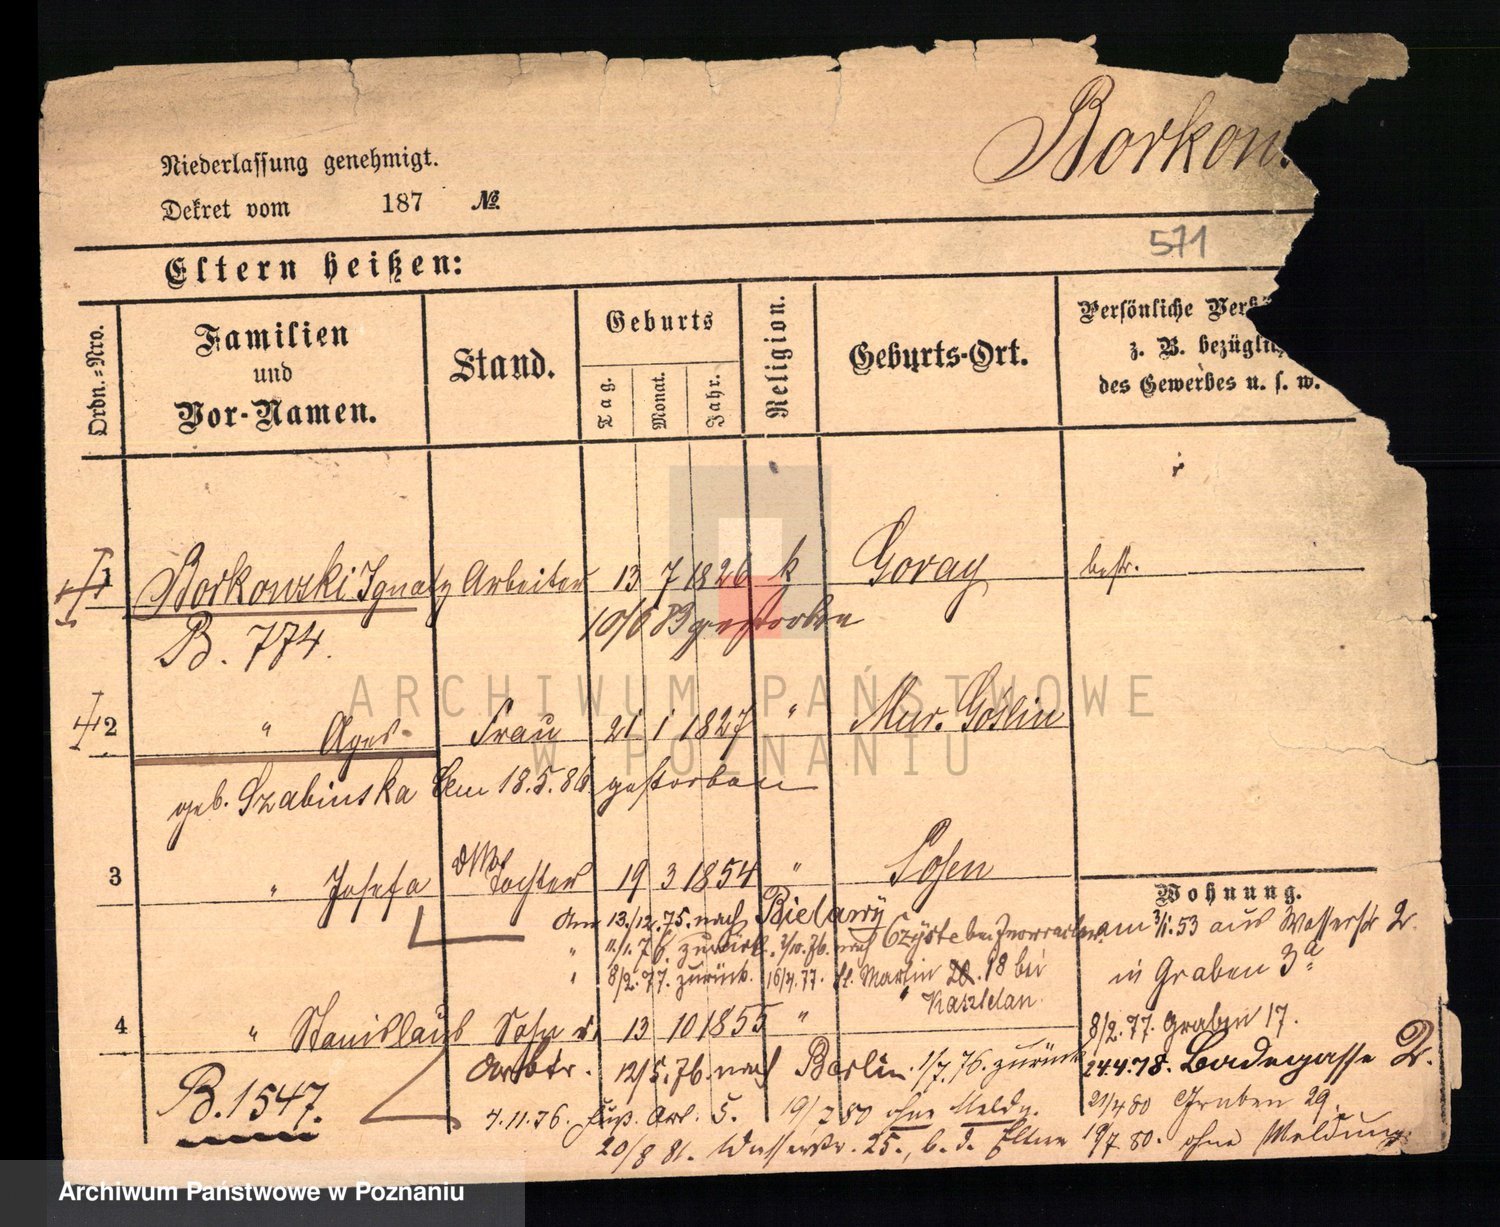 Borkow
Niederlassung genehmigt.
Dekret vom 187 №.
571
Eltern heißen:
Ordn.-Nro.
Familien und Vor-Namen.
Stand.
Geburts
Tag.
Monat.
Jahr.
Religion.
Geburts-Ort.
Persönliche
z. B. bezügli
des Gewerbes u. s. w.
1 Borkowski Ignatz Arbeiter 13 7 1826 k Goray bestr.
10/6 83 gestorben
B. 774.
2 " Agnes Frau 21 1 1827 " Mur. Goslin
geb. Szabinska Am 18.5.86. gestorben
3 " Josefa Tochter 19 3 1854 " Posen
Wohnung.
Am 13./12.75. nach Bielawy
am 3/1.53 aus Wasserstr 2.
" 11/1.76. zurück. nach Czyste bei
in Graben 3a
" 8/2.77. zurück. 16/4.77. St. Martin 20. 18 bei
Kasztelan.
4 " Stanislaus Sohn 13 10 1855 "
8/2.77. Graben 17.
Arbtr. 12/5.76. nach Berlin. 1/7.76. zurück
24.4.78. Badegasse 2.
B. 1547.
7.11.76. Fuß. Art. 5. 19/7 80 ohne Meldg.
21/4 80 Graben 29.
20/8 81. Wasserstr. 25., b. d. Eltern
19/7 80. ohne Meldung.
ARCHIWUM PAŃSTWOWE
W POZNANIU
Archiwum Państwowe w Poznaniu